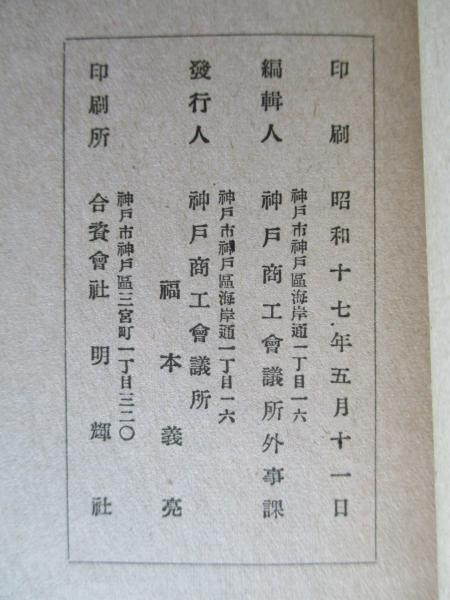 印刷 昭和十七年五月十一日
神戸市神戸區海岸通一丁目一六
編輯人 神戸商工會議所外事課
神戸市神戸區海岸通一丁目一六
發行人 神戸商工會議所
福本義亮
神戸市神戸區三宮町一丁目三二〇
印刷所 合資會社 明輝社